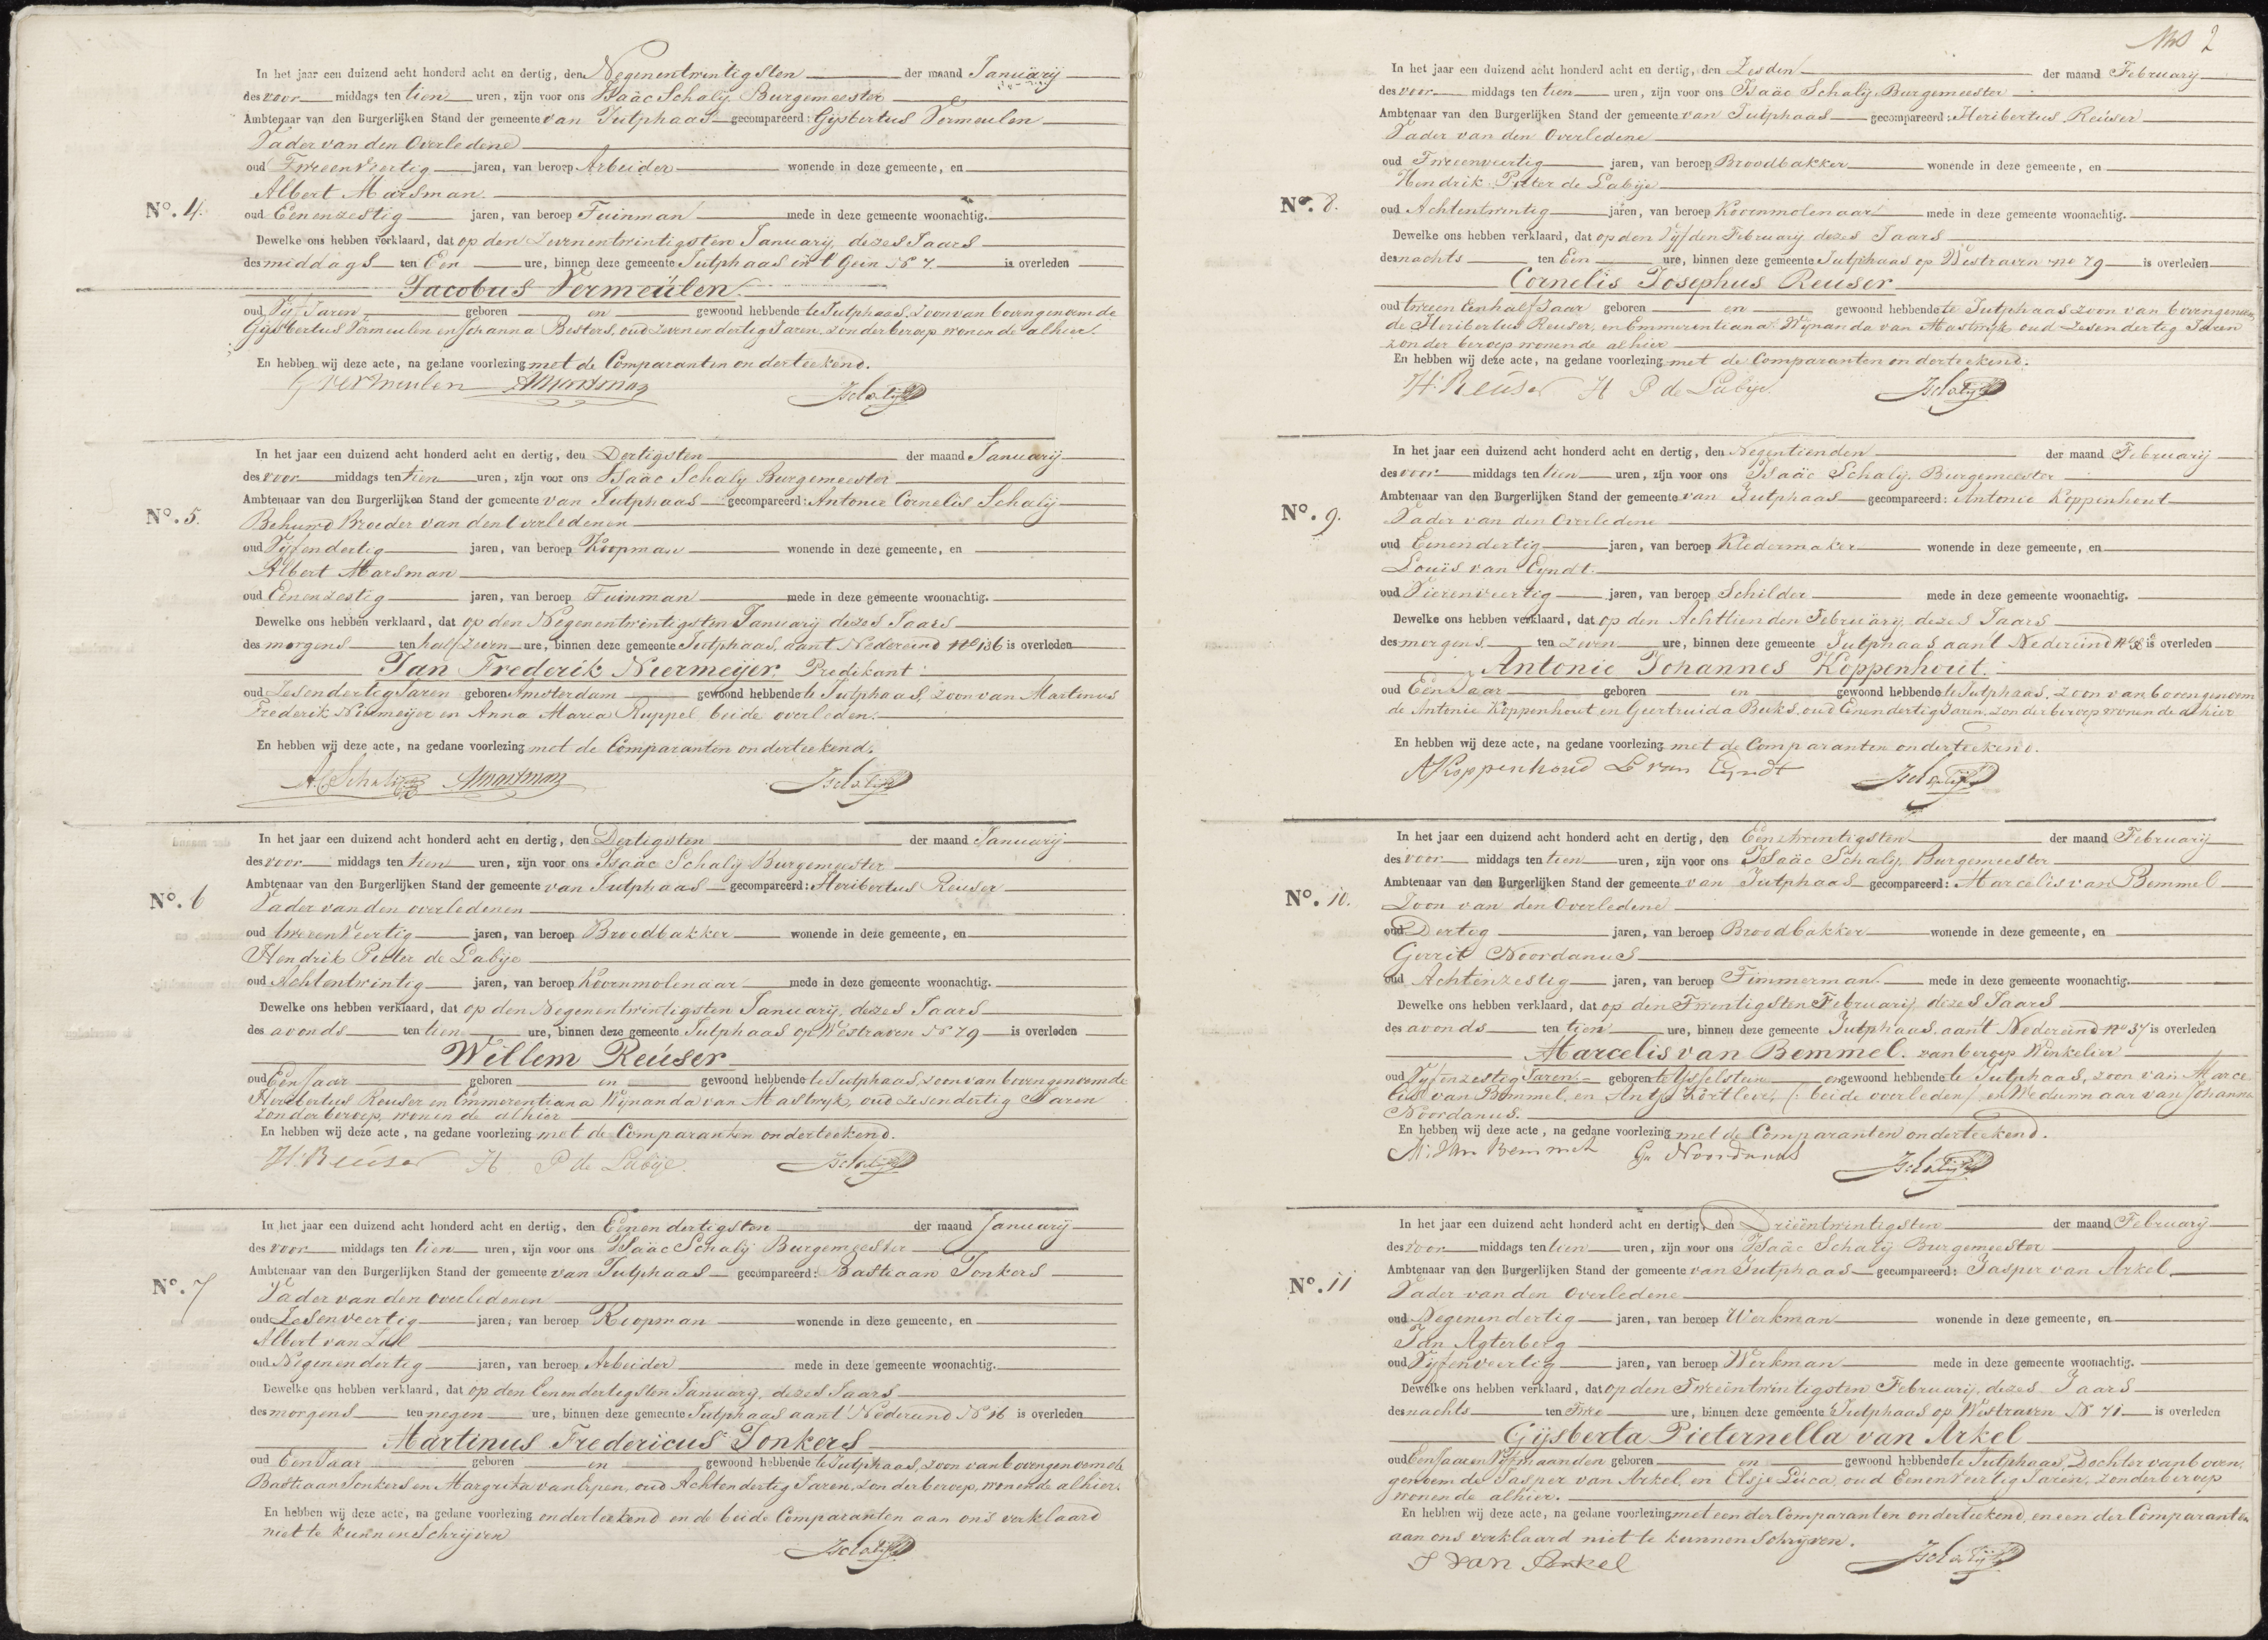 In het jaar een duizend acht honderd acht en dertig, den Negenentwintigsten der maand Januarij
des voor middags ten tien uren, zijn voor ons Isaäc Schalij Burgemeester
Ambtenaar van den Burgerlijken Stand der gemeente van Jutphaas gecompareerd: Gijsbertus Vermeulen
Vader van den Overledene
oud Tweeenveertig jaren, van beroep Arbeider wonende in deze gemeente, en
Albert Marsman.
No. 4. oud Eenenzestig jaren, van beroep Tuinman mede in deze gemeente woonachtig.
Dewelke ons hebben verklaard, dat op den Zevenentwintigsten Januarij dezes Jaars
des middags ten Een ure, binnen deze gemeente Jutphaas in 't Gein No 7. is overleden
Jacobus Vermeulen.
oud Vijf Jaren geboren en gewoond hebbende te Jutphaas, Zoon van bovengenoemde
Gijsbertus Vermeulen en Johanna Besters, oud Zevenendertig Jaren, zonder beroep wonende alhier.
En hebben wij deze acte, na gedane voorlezing met de Comparanten onderteekend.
G Vermeulen AMarsman ISchalij
In het jaar een duizend acht honderd acht en dertig, den Dertigsten der maand Januarij
des voor middags ten tien uren, zijn voor ons Isaäc Schalij Burgemeester
Ambtenaar van den Burgerlijken Stand der gemeente van Jutphaas gecompareerd: Antonie Cornelis Schalij
No. 5. Behuwd Broeder van den Overledenen
oud Vijfendertig jaren, van beroep Koopman wonende in deze gemeente, en
Albert Marsman
oud Eenenzestig jaren, van beroep Tuinman mede in deze gemeente woonachtig.
Dewelke ons hebben verklaard, dat op den Negenentwintigsten Januarij dezes Jaars
des morgens ten half zeven ure, binnen deze gemeente Jutphaas, aant Nedereind No 136 is overleden
Jan Frederik Niermeijer, Predikant
oud Zesendertig Jaren geboren Amsterdam gewoond hebbende te Jutphaas, zoon van Martinus
Frederik Niermeijer en Anna Maria Ruppel, beide overleden.
En hebben wij deze acte, na gedane voorlezing met de Comparanten onderteekend.
A.C Schalij AMarsman ISchalij
In het jaar een duizend acht honderd acht en dertig, den Dertigsten der maand Januarij
des voor middags ten tien uren, zijn voor ons Isaäc Schalij Burgemeester
Ambtenaar van den Burgerlijken Stand der gemeente van Jutphaas gecompareerd: Heribertus Reuser
No. 6 Vader van den overledenen
oud tweeenveertig jaren, van beroep Broodbakker wonende in deze gemeente, en
Hendrik Pieter de Labije
oud Achtentwintig jaren, van beroep Koornmolenaar mede in deze gemeente woonachtig.
Dewelke ons hebben verklaard, dat op den Negenentwintigsten Januarij, dezes Jaars
des avonds ten tien ure, binnen deze gemeente Jutphaas op Westraven No 79 is overleden
Willem Reuser
oud Een Jaar geboren en gewoond hebbende te Jutphaas, zoon van bovengenoemde
Heribertus Reuser en Emmerentiana Wijnanda van Mastwijk, oud zesendertig Jaren
zonder beroep, wonende alhier
En hebben wij deze acte, na gedane voorlezing met de Comparanten onderteekend.
H: Reuser H P de Labije. ISchalij
In het jaar een duizend acht honderd acht en dertig, den Eenendertigsten der maand Januarij
des voor middags ten tien uren, zijn voor ons Isaäc Schalij Burgemeester
Ambtenaar van den Burgerlijken Stand der gemeente van Jutphaas gecompareerd: Bastiaan Jonkers
No. 7 Vader van den overledenen
oud Zesenveertig jaren, van beroep Koopman wonende in deze gemeente, en
Albert van
oud Negenendertig jaren, van beroep Arbeider mede in deze gemeente woonachtig.
Dewelke ons hebben verklaard, dat op den Eenendertigsten Januarij, dezes Jaars
des morgens ten negen ure, binnen deze gemeente Jutphaas aant Nedereind No 16 is overleden
Martinus Fredericus Jonkers
oud Een Jaar geboren en gewoond hebbende te Jutphaas, zoon van bovengenoemde
Bastiaan Jonkers en Margrita van Epen, oud Achtendertig Jaren, zonder beroep, wonende alhier.
En hebben wij deze acte, na gedane voorlezing onderteekend en de beide Comparanten aan ons verklaard
niet te kunnen Schrijven
ISchalij
2
In het jaar een duizend acht honderd acht en dertig, den Zesden der maand Februarij
des voor middags ten tien uren, zijn voor ons Isaäc Schalij, Burgemeester
Ambtenaar van den Burgerlijken Stand der gemeente van Jutphaas gecompareerd: Heribertus Reuser
Vader van den Overledene
oud Tweeenveertig jaren, van beroep Broodbakker wonende in deze gemeente, en
Hendrik Pieter de Labije
No. 8. oud Achtentwintig jaren, van beroep Koornmolenaar mede in deze gemeente woonachtig.
Dewelke ons hebben verklaard, dat op den Vijfden Februarij dezes Jaars
des nachts ten Een ure, binnen deze gemeente Jutphaas op Westraven no 79 is overleden
Cornelis Josephus Reuser
oud tween Eenhalf Jaar geboren en gewoond hebbende te Jutphaas zoon van bovengenoem
de Heribertus Reuser, en Emmerentiana Wijnanda van Mastwijk oud Zesendertig Jaren
zonder beroep wonende alhier
En hebben wij deze acte, na gedane voorlezing met de Comparanten onderteekend.
H: Reuser H P de Labije. ISchalij
In het jaar een duizend acht honderd acht en dertig, den Negentienden der maand Februarij
des voor middags ten tien uren, zijn voor ons Isaäc Schalij, Burgemeester
Ambtenaar van den Burgerlijken Stand der gemeente van Jutphaas gecompareerd: Antonie Koppenhout
No. 9. Vader van den Overledene
oud Eenendertig jaren, van beroep Kledermaker wonende in deze gemeente, en
Louis van Eyndt.
oud Vierenveertig jaren, van beroep Schilder mede in deze gemeente woonachtig.
Dewelke ons hebben verklaard, dat op den Achttienden Februarij, dezes Jaars
des morgens ten zeven ure, binnen deze gemeente Jutphaas aan't Nedereind No is overleden
Antonie Johannes Koppenhout.
oud Een Jaar geboren en gewoond hebbende te Jutphaas, zoon van bovengenoem
de Antonie Koppenhout en Geertruida Buks, oud Eenendertig Jaren, zonder beroep wonende alhier
En hebben wij deze acte, na gedane voorlezing met de Comparanten onderteekend.
AKoppenhoud L van Eyndt ISchalij
In het jaar een duizend acht honderd acht en dertig, den Eenentwintigsten der maand Februarij
des voor middags ten tien uren, zijn voor ons Isaäc Schalij, Burgemeester
Ambtenaar van den Burgerlijken Stand der gemeente van Jutphaas gecompareerd: Marcelis van Bemmel
No. 10. Zoon van den Overledene
oud Dertig jaren, van beroep Broodbakker wonende in deze gemeente, en
Gerrit Noordanus
oud Achtenzestig jaren, van beroep Timmerman. mede in deze gemeente woonachtig.
Dewelke ons hebben verklaard, dat op den Twentigsten Februarij, dezes Jaars
des avonds ten tien ure, binnen deze gemeente Jutphaas, aan't Nedereind No 37 is overleden
Marcelis van Bemmel. van beroep Winkelier
oud Vijfenzestig Jaren. geboren te IJsselstein en gewoond hebbende te Jutphaas, zoon van Marce
lis van Bemmel, en Antje Kortleve, (: beide overleden) en Weduwnaar van Johanna
Noordanus.
En hebben wij deze acte, na gedane voorlezing met de Comparanten onderteekend.
M: van Bemmel Gr Noordanus ISchalij
In het jaar een duizend acht honderd acht en dertig, den Drieëntwintigsten der maand Februarij
des voor middags ten tien uren, zijn voor ons Isaäc Schalij Burgemeester
Ambtenaar van den Burgerlijken Stand der gemeente van Jutphaas gecompareerd: Jasper van Arkel
No. 11 Vader van den Overledene
oud Negenendertig jaren, van beroep Werkman wonende in deze gemeente, en
Jan Agterberg
oud Vijfenveertig jaren, van beroep Werkman mede in deze gemeente woonachtig.
Dewelke ons hebben verklaard, dat op den Tweeëntwintigsten Februarij, dezes Jaars
des nachts ten Twee ure, binnen deze gemeente Jutphaas op Westraven No 71 is overleden
Gijsberta Pieternella van Arkel
oud Een Jaar en Vijf maanden geboren en gewoond hebbende te Jutphaas, Dochter van boven,
genoemde Jasper van Arkel, en Elsje Luca, oud Eenenveertig Jaren, zonder beroep
wonende alhier.
En hebben wij deze acte, na gedane voorlezing met een der Comparanten onderteekend, en een der Comparanten
aan ons verklaard niet te kunnen Schrijven.
J van Arkel ISchalij